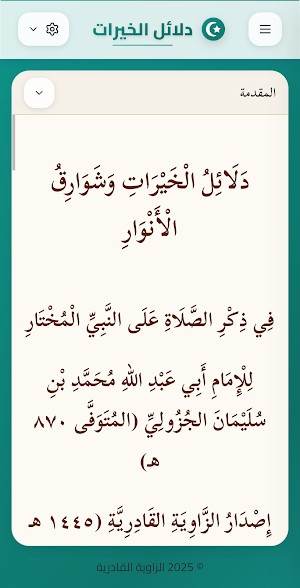 دلائل الخيرات
المقدمة
دَلَائِلُ الْخَيْرَاتِ وَشَوَارِقُ
الْأَنْوَارِ
فِي ذِكْرِ الصَّلَاةِ عَلَى النَّبِيِّ الْمُخْتَارِ
لِلْإِمَامِ أَبِي عَبْدِ اللهِ مُحَمَّدِ بْنِ
سُلَيْمَانَ الجُزُولِيِّ (المُتَوَفَّى ٨٧٠
هـ)
إِصْدَارُ الزَّاوِيَةِ القَادِرِيَّةِ (١٤٤٥ هـ
© 2025 الزاوية القادرية